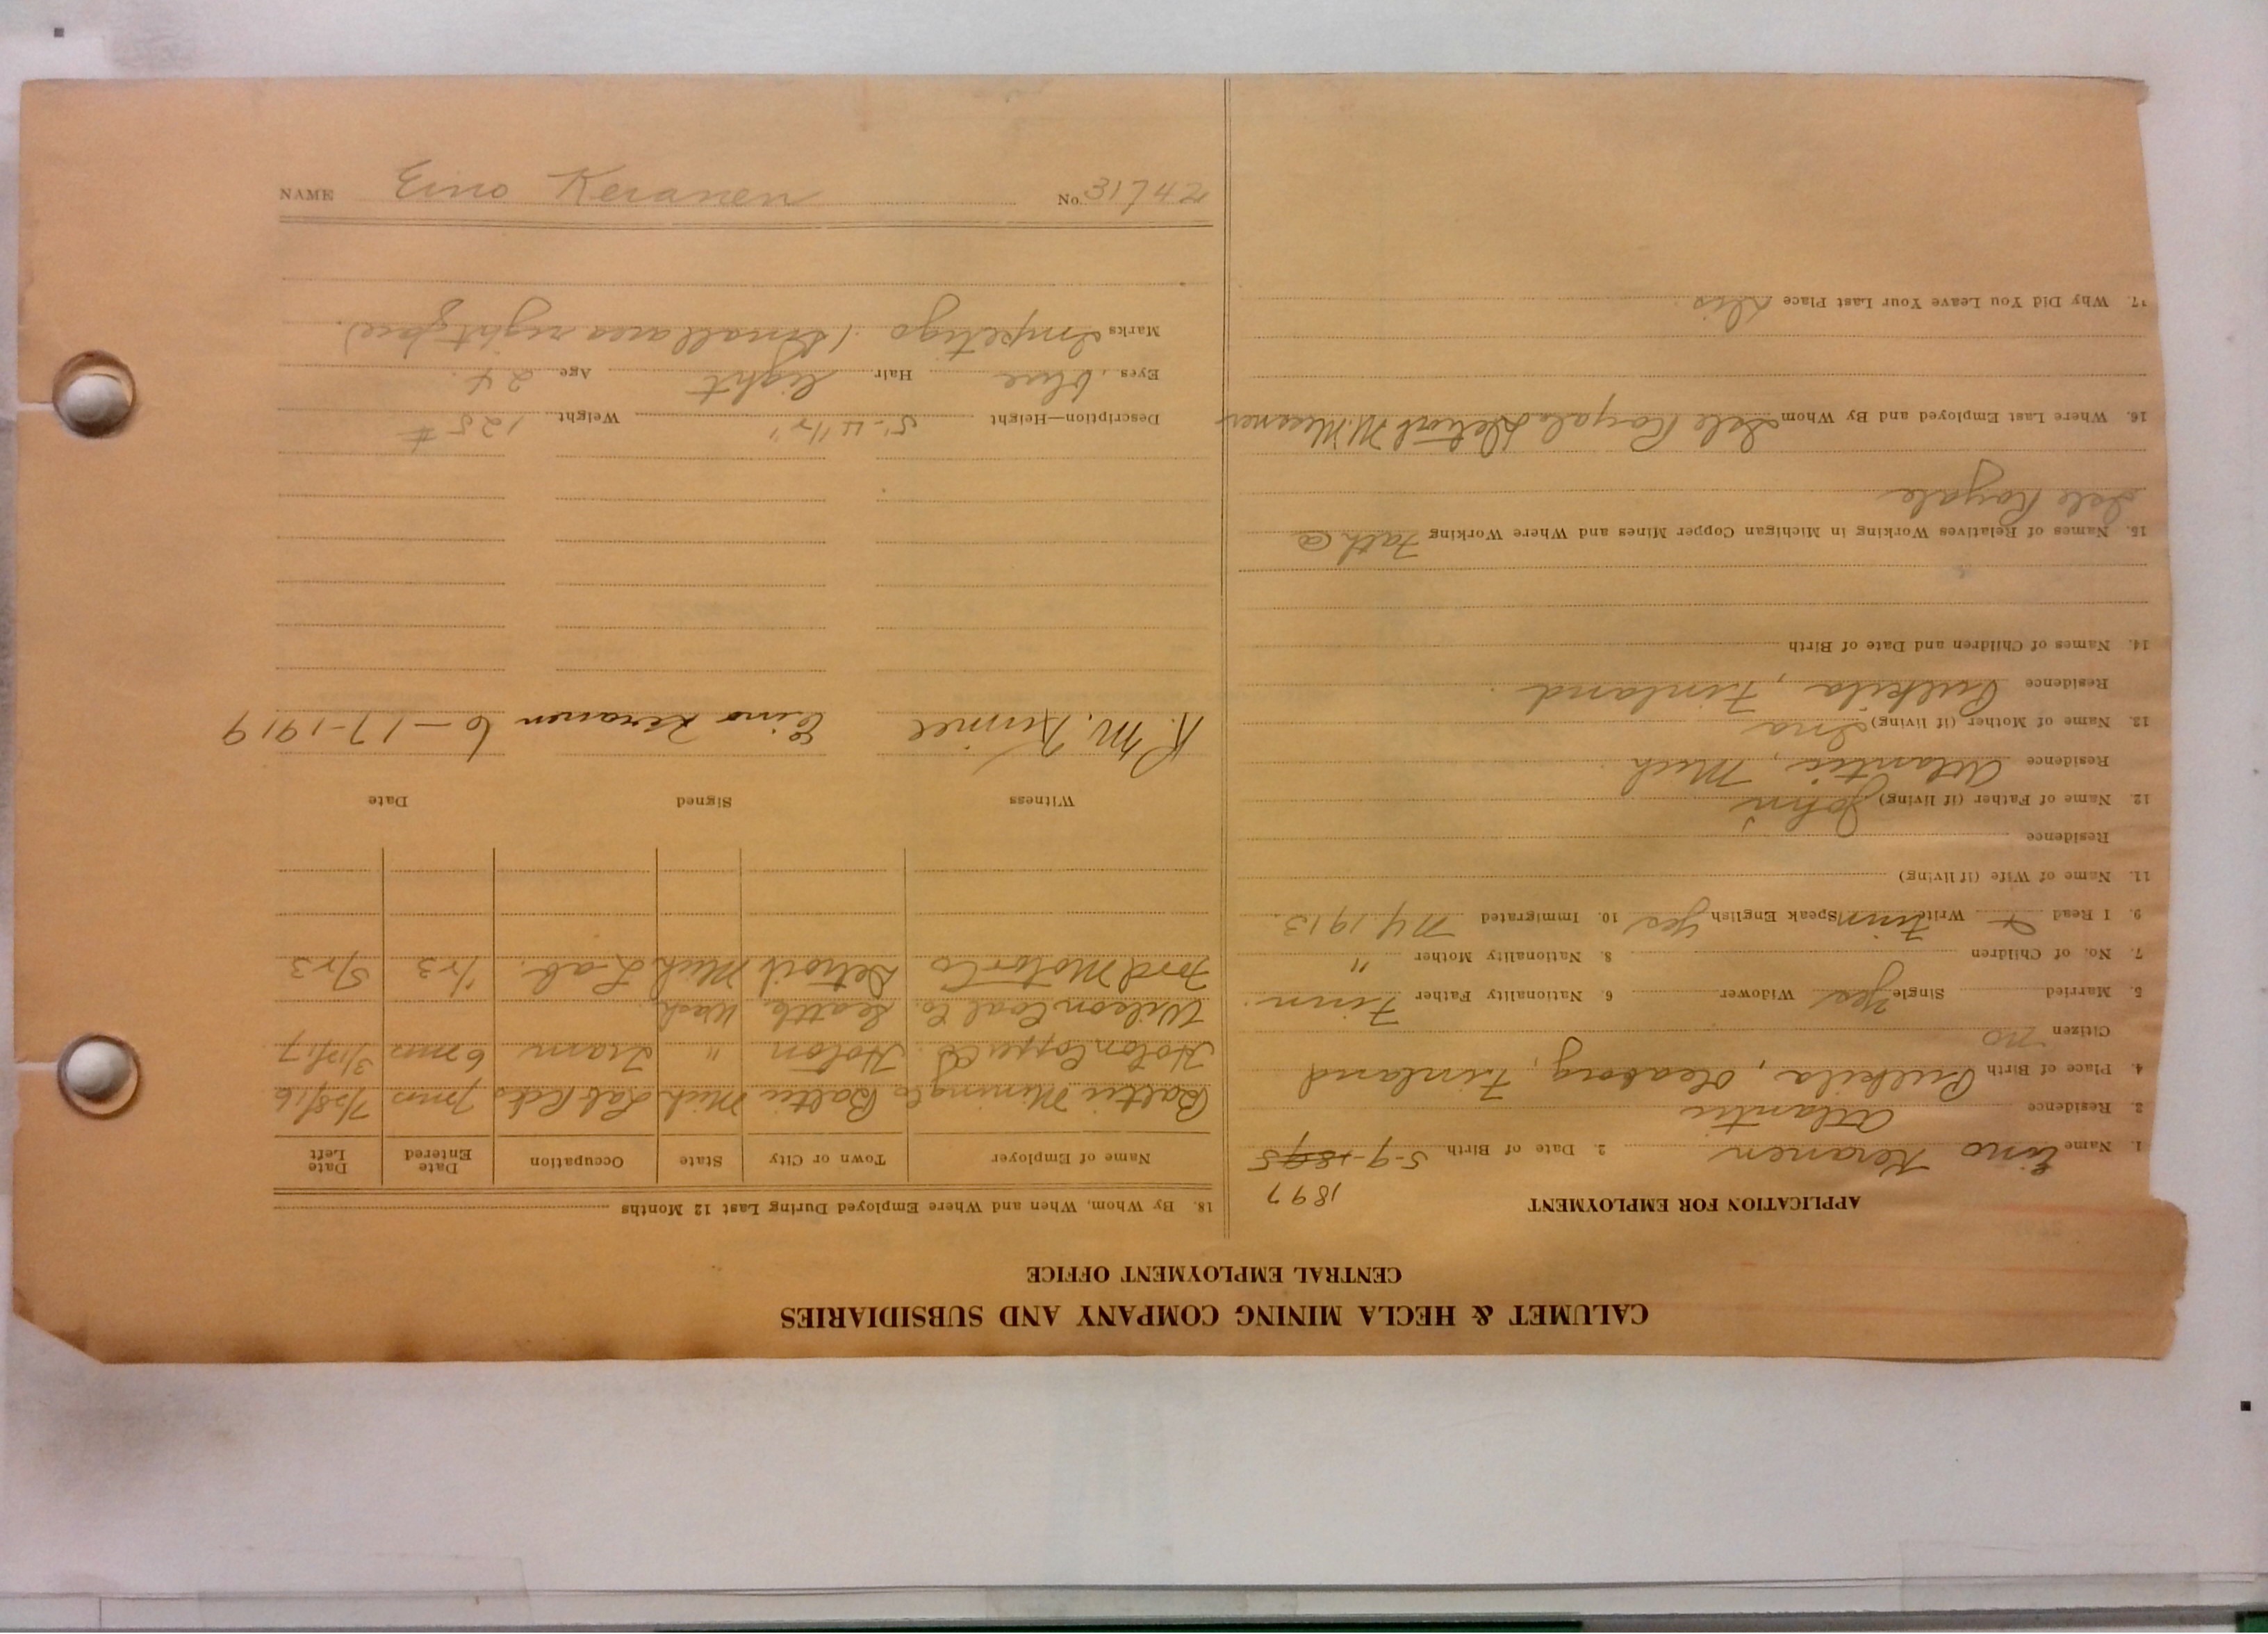 CALUMET & HECLA MINING COMPANY AND SUBSIDIARIES
CENTRAL EMPLOYMENT OFFICE
APPLICATION FOR EMPLOYMENT
1897
1. Name Eino Keranen 2. Date of Birth 5-9-1895
3. Residence Atlantic
4. Place of Birth Pulkila, Oleaborg, Finland
Citizen no
5. Married Single yes Widower 6. Nationality Father Finn.
7. No. of Children 8. Nationality Mother "
9. I Read & Write Finn Speak English yes 10. Immigrated NY 1913.
11. Name of Wife (if living)
Residence
12. Name of Father (if living) John
Residence Atlantic, Mich.
13. Name of Mother (if living) Ina
Residence Pulkila, Finland.
14. Names of Children and Date of Birth
15. Names of Relatives Working in Michigan Copper Mines and Where Working Fath @
Isle Royale
16. Where Last Employed and By Whom Isle Royale M. Messner
17. Why Did You Leave Your Last Place Dis
18. By Whom, When and Where Employed During Last 12 Months
Name of Employer Town or City State Occupation Date Entered Date Left
Baltic Mining Co Baltic Mich 7 mos 7/28/16
Copper Co " Tram 6 mos 3/17/17
Wilson Coal Co. Seattle Wash.
Ford Motor Co Detroit Mich Lab. 1/23 5/23
Witness Signed Date
Eino Keranen 6-17-1919
Description—Height 5'-4 1/2" Weight 125 #
Eyes blue Hair light Age 24.
Marks Impetigo (Small area right face)
NAME Eino Keranen No. 31742